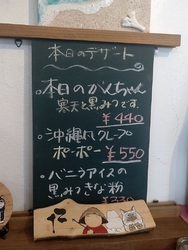 本日のデザート
・本日のかんちゃん
寒天と黒みつです。
¥440
・沖縄風クレープ
ポーポー ¥550
・バニラアイスの
黒みつきな粉
¥330